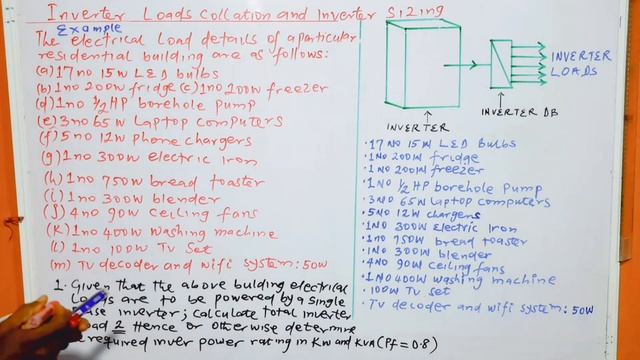 Inverter Loads Collation and Inverter Sizing
Example
The electrical Load details of a particular
residential building are as follows:
(a) 17 no 15W LED bulbs
(b) 1no 200W fridge (c) 1no 200W freezer
(d) 1no 1/2 HP borehole pump
(e) 3no 65W Laptop computers
(f) 5no 12W phone chargers
(g) 1no 300W electric iron
(h) 1no 750W bread toaster
(i) 1no 300W blender
(j) 4no 90W ceiling fans
(k) 1no 400W washing machine
(l) 1no 100W TV set
(m) TV decoder and wifi system: 50W
1. Given that the above bulding electrical
are to be powered by a single
inverter; calculate total inverter
2 Hence or otherwise determine
required inver power rating in KW and KVA (Pf = 0.8)
INVERTER
LOADS
INVERTER DB
INVERTER
• 17 NO 15W LED bulbs
• 1NO 200W fridge
• 1NO 200W freezer
• 1NO 1/2 HP borehole pump
• 3NO 65W Laptop computers
• 5NO 12W chargers
• 1NO 300W electric iron
• 1no 750W bread toaster
• 1no 300W blender
• 4NO 90W ceiling fans
• 1NO 400W washing machine
• 100W TV set
• TV decoder and wifi system: 50W